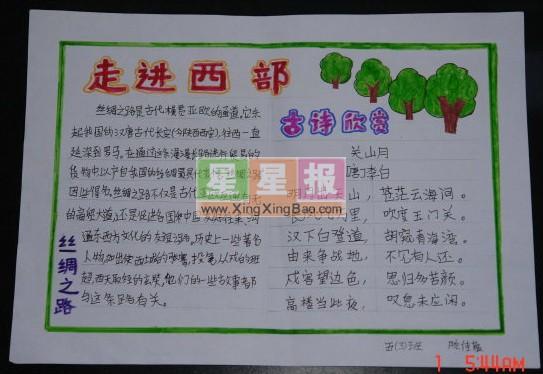 走进西部
丝绸之路是古代横贯亚欧的通道,它东
起我国的汉唐古代长安(今陕西西安),往西一直
延深到罗马。在通过这条漫漫长路进行贸易的
货物中以产自我国的丝绸最具代表性,丝绸之路
因此得名。丝绸之路不仅是古代
的商貿大道,还是促进各国和中
通东西方文化的友谊之路。历史上一些著名
人物,如出使西域的张骞,投笔从戎的班
超,西天取经的玄奘,他们的一些故事都
与这条路有关。
丝绸之路
古诗欣赏
关山月
唐:李白
明月出天山,苍茫云海间。
长风几万里,吹度玉门关。
汉下白登道,胡窥青海湾。
由来争战地,不见有人还。
戍客望边色,思归多苦颜。
高楼当此夜,叹息未应闲。
星星报
www.XingXingBao.com
五(3)班
1 5:44AM